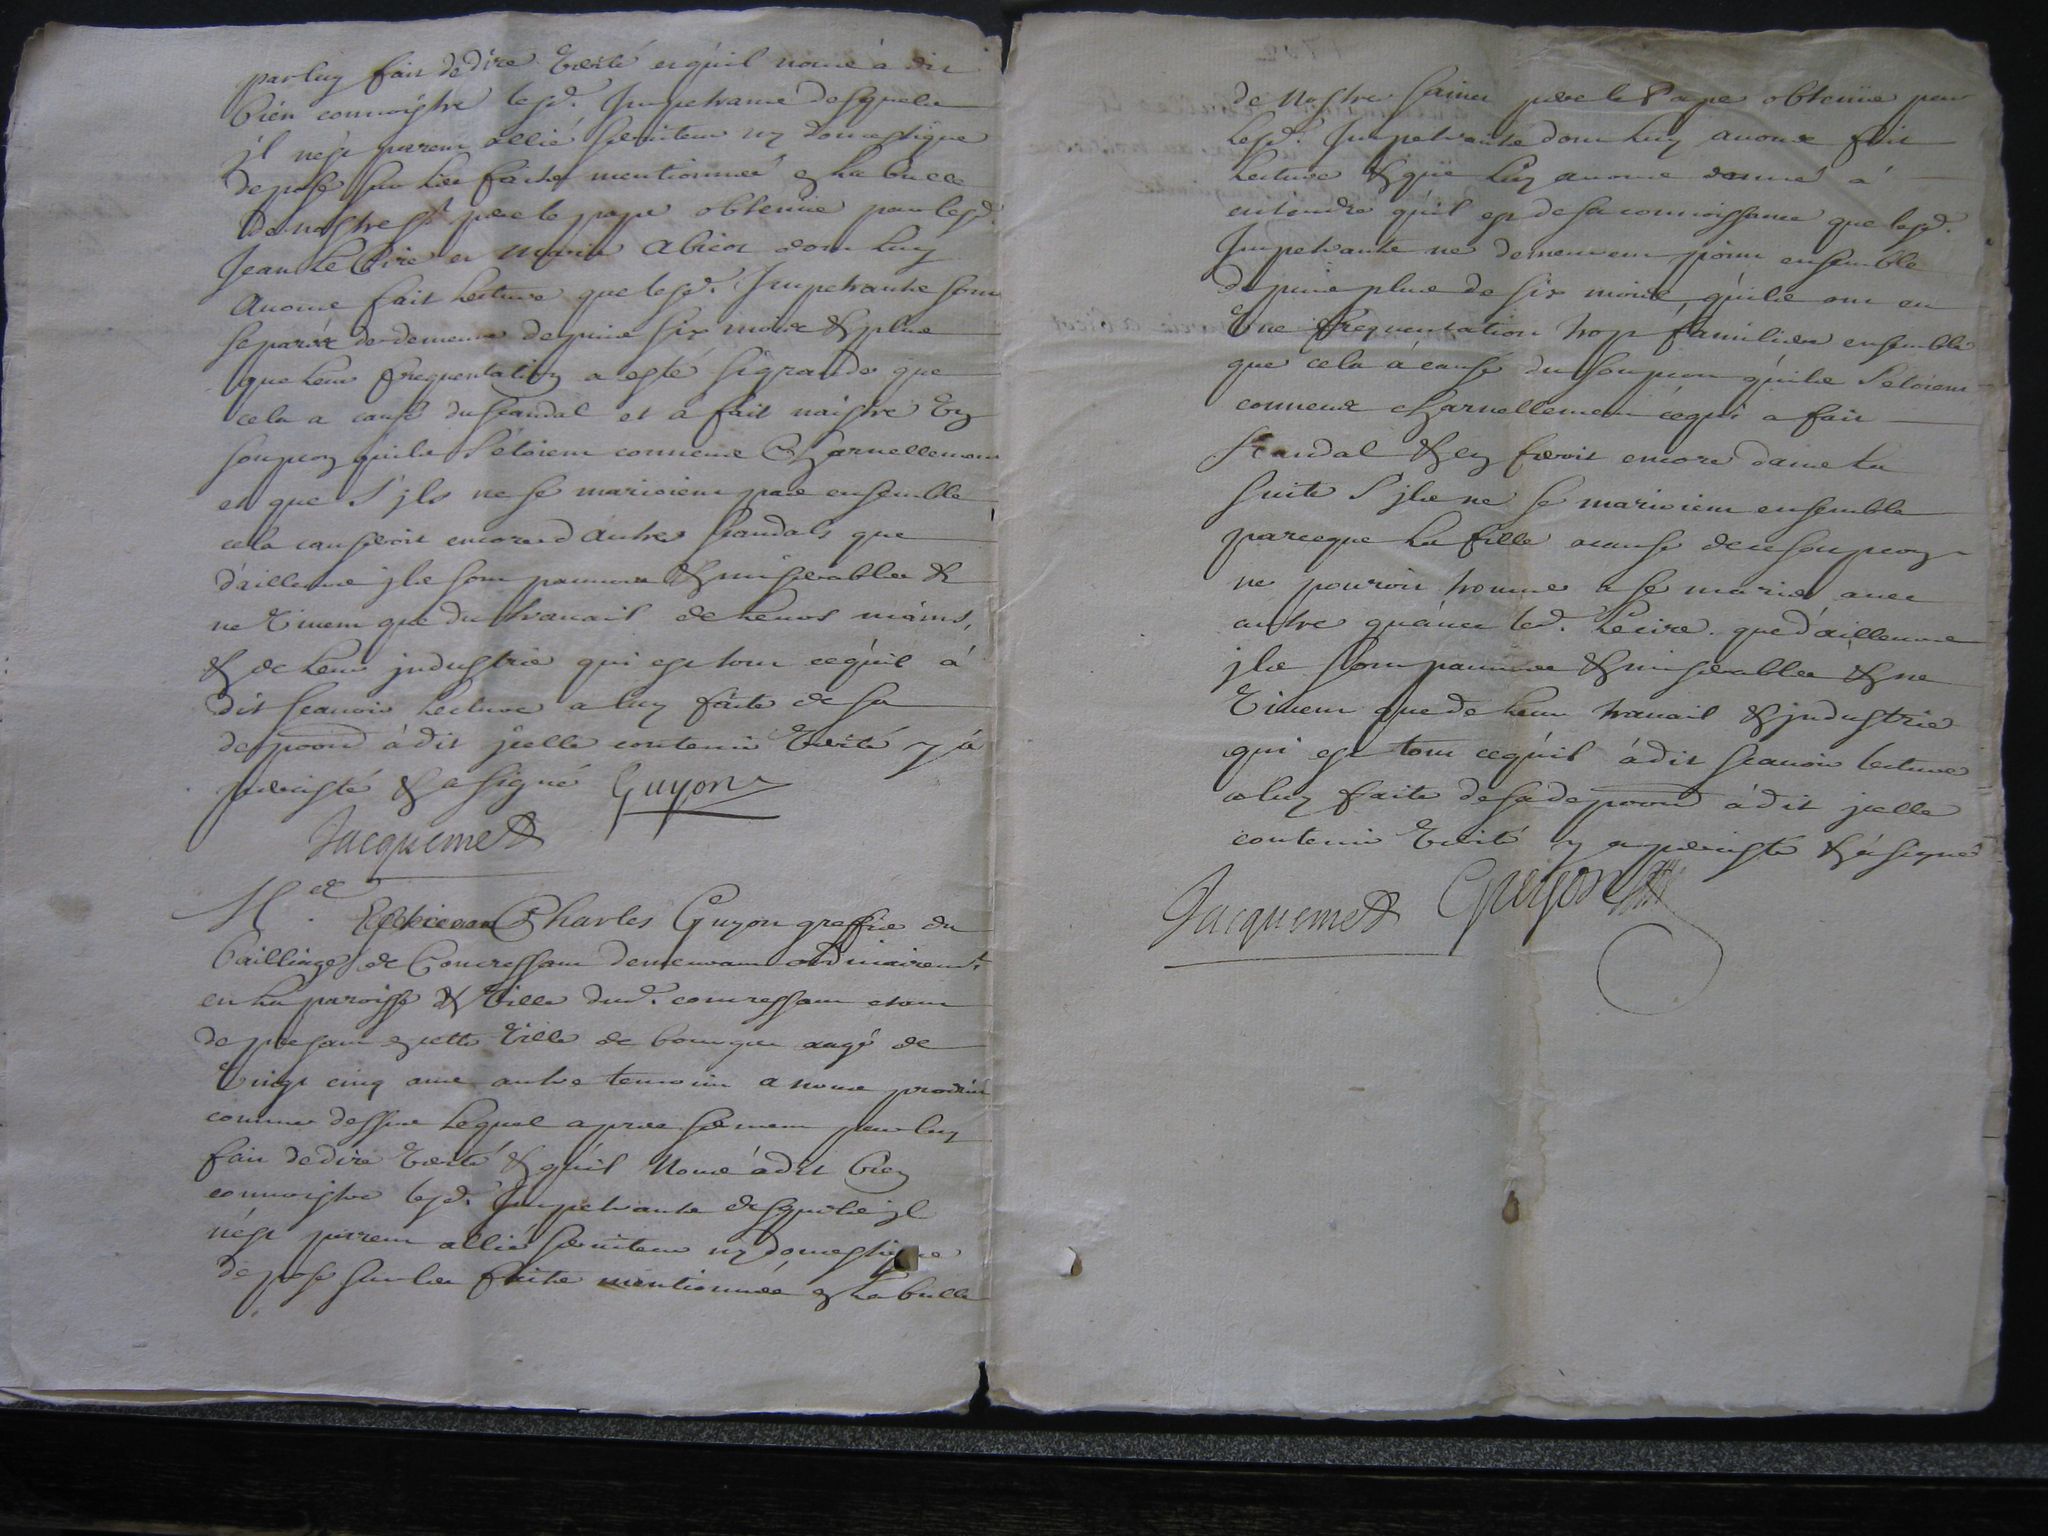 par luy fait de dire verité et qu'il nous à dit
bien connoistre lesd. Impetrants desquels
jl n'est parent allié seruiteur ny domestique
depose sur les faits mentionnés en la bulle
de nostre st pere le pape obtenüe par lesd.
Jean Le Cire et Marie Abicot dont luy
auons fait lecture que lesd. Impetrants sont
separéz de demeure depuis six mois & plus
que leur frequentation a esté sigrande que
cela a causé du scandal et à fait naistre vn
soupçon qu'ils s'étoient connues charnellement
et que s'jls ne se marioient pas ensemble
cela causeroit encore d'autres scandals que
d'ailleurs jls sont pauures & miserables &
ne viuent que du trauail de leurs mains,
& de leur jndustrie qui est tout ce qu'il à
dit scauoir lecture a luy faite de sa
depoon à dit jcelle contenir verité y à
persisté & a signé Guyon
Jacquemet
Me Charles Guyon greffier du
bailliage de Concressaut demeurant ordinairemt
en la paroisse & ville dud. concressaut etant
de present en cette ville de bourges aagé de
vingt cinq ans autre temoin a nous produit
comme dessus lequel apres serment par luy
fait de dire verité & qu'il nous à dit bien
connoistre lesd. Impetrants desquels jl
n'est parent allié seruiteur ny domestique
depose sur les faits mentionnés en la bulle
de nostre saint pere le Pape obtenüe par
lesd. Impetrants dont luy auons fait
lecture & que luy auons donné à
entendre qu'il est de sa connoissance que lesd.
Impetrants ne demeurent point ensemble
depuis plus de six mois, qu'ils ont eu
vne frequentation trop familiere ensemble
que cela à causé du soupçon qu'ils s'étoient
connues charnellement ce qui a fait
scandal & en feroit encore dans la
suite s'jls ne se marioient ensemble
parceque la fille a cause de ce soupçon
ne pouroit trouuer a se marier auec
autre qu'auec led. Le cire. que d'ailleurs
jls sont pauures & miserables & ne
viuent que de leur trauail & jndustrie
qui est tout ce qu'il à dit scauoir lecture
a luy faite de sa depoon à dit jcelle
contenir verité y a persisté & a signé
Jacquemet Guyon